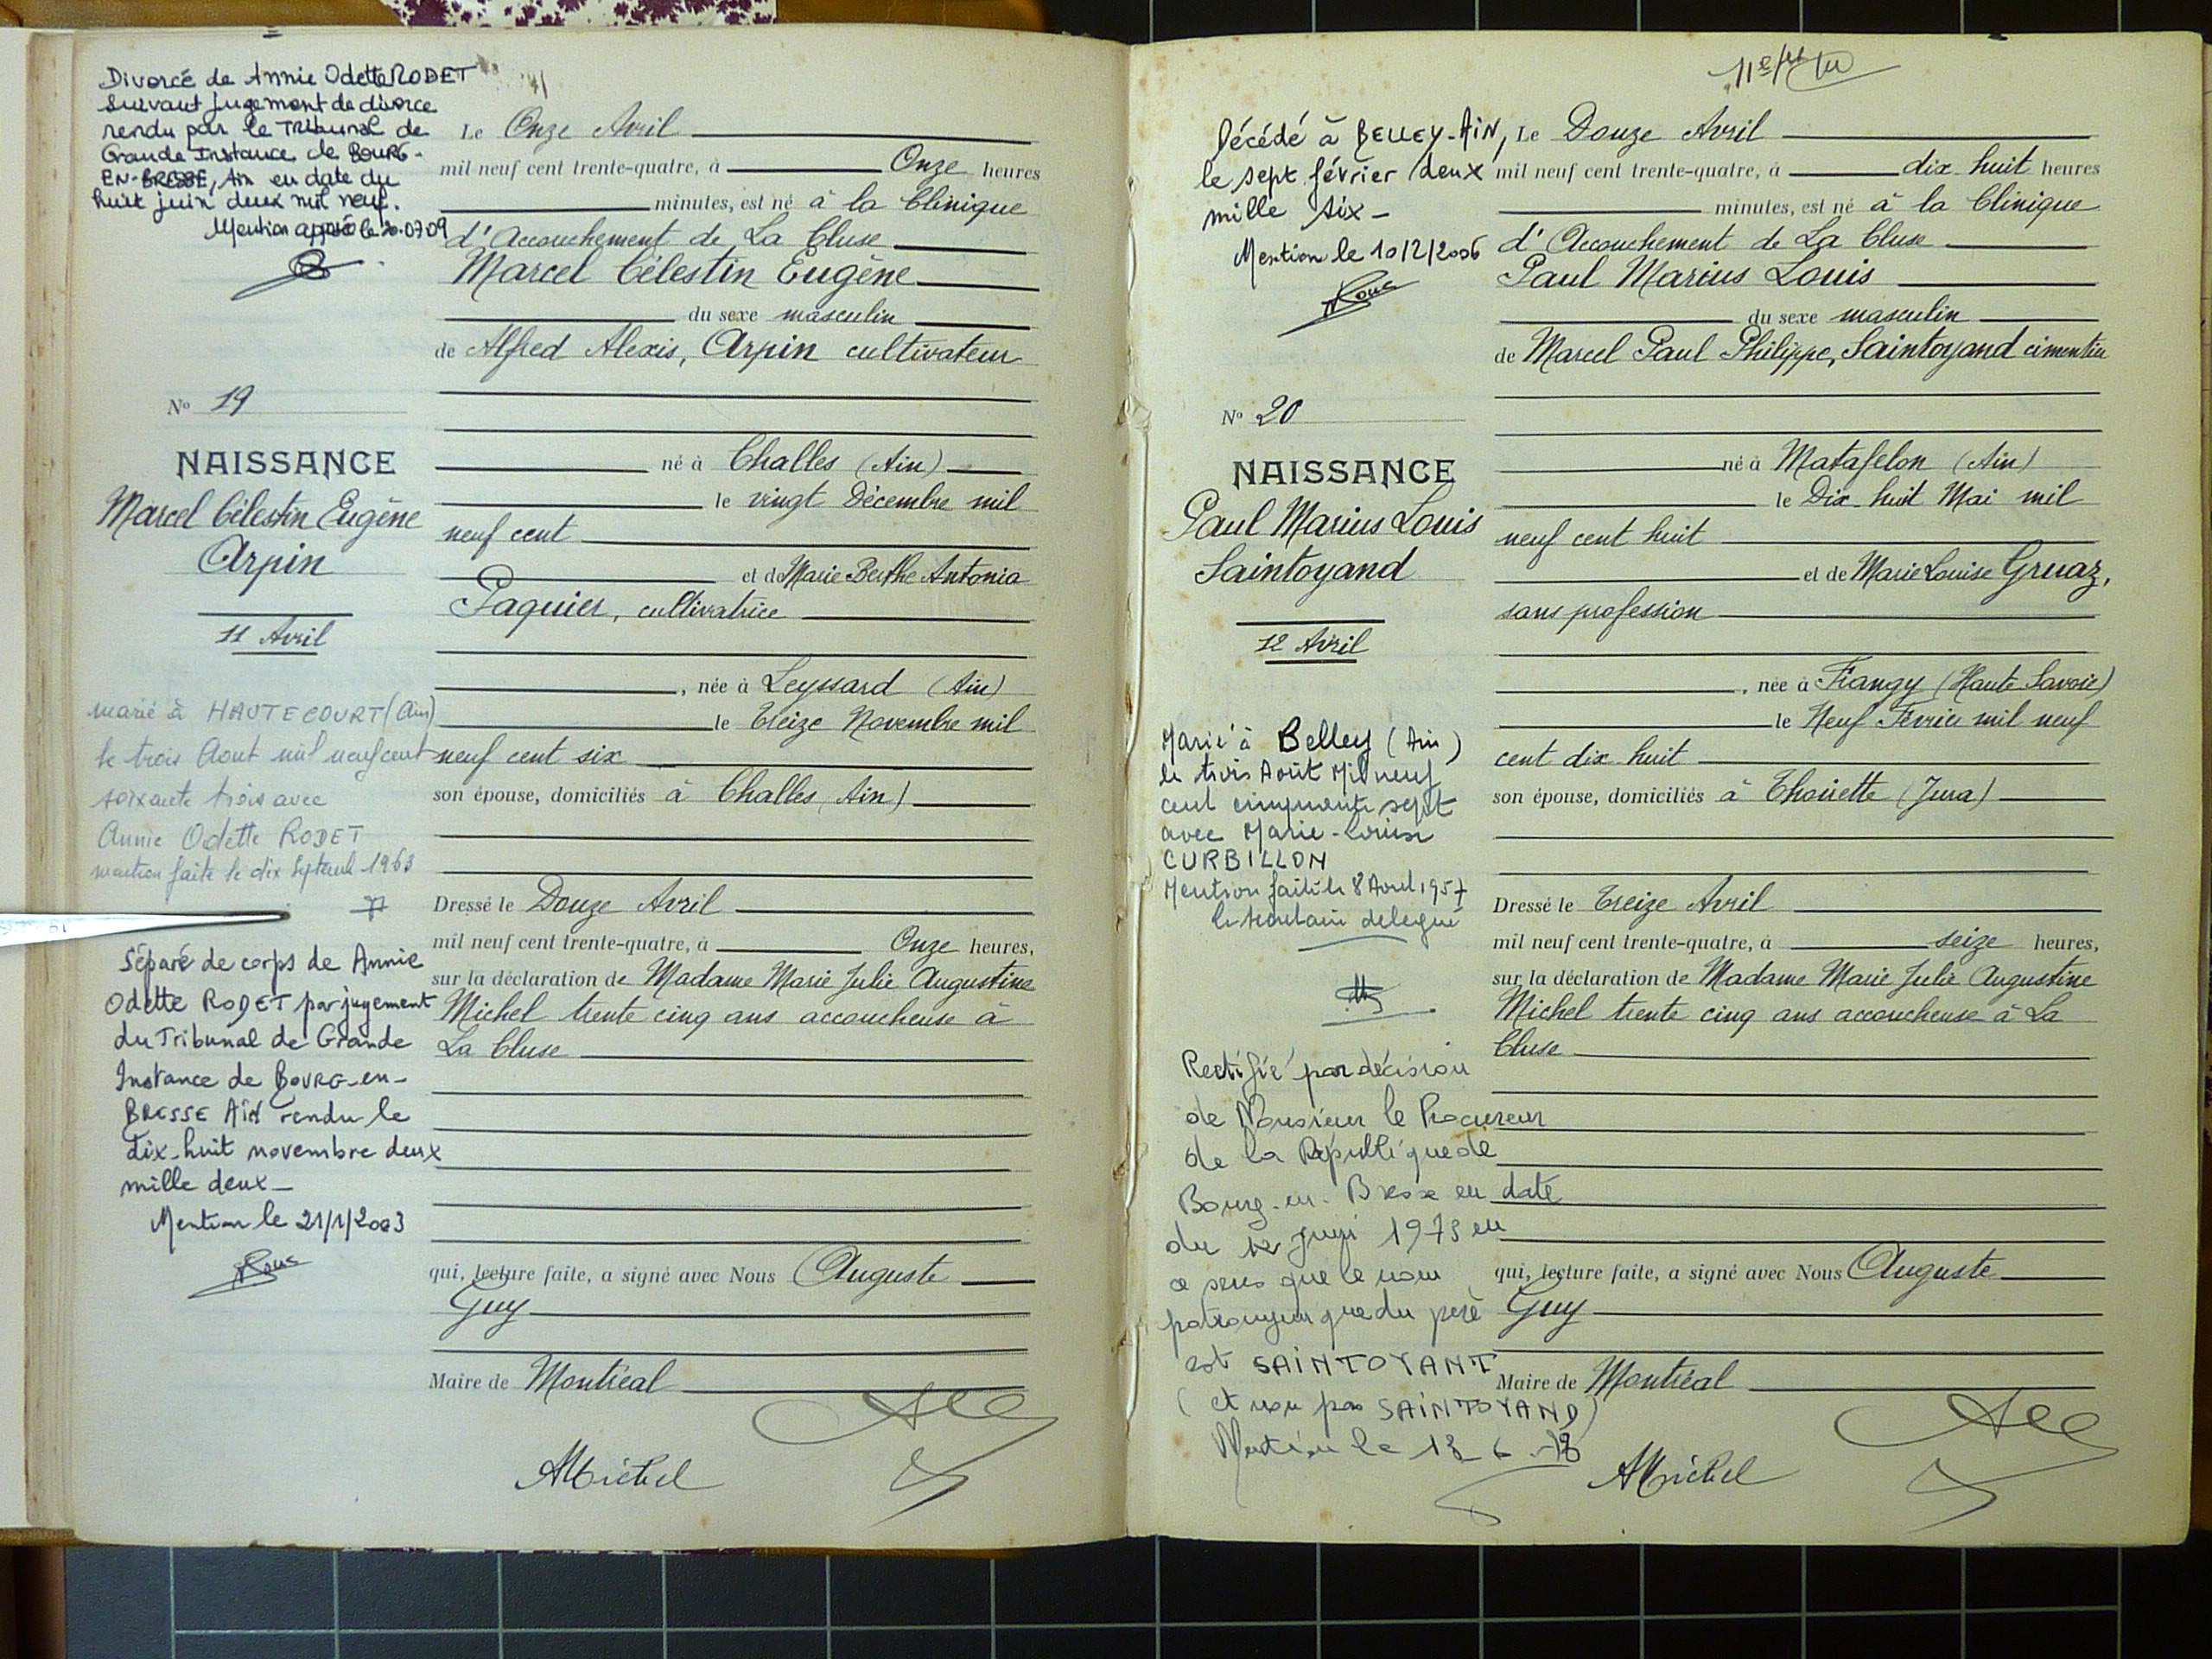 Divorcé de Annie Odette RODET
suivant jugement de divorce
rendu par le Tribunal de
Grande Instance de BOURG-
EN-BRESSE, Ain en date du
huit juin deux mil neuf.
Mention apposée le 20.07.09
Le Onze Avril
mil neuf cent trente-quatre, à Onze heures
minutes, est né à la Clinique
d'Accouchement de La Cluse
Marcel Célestin Eugène
du sexe masculin
de Alfred Alexis, Arpin cultivateur
né à Challes (Ain)
le vingt Décembre mil
neuf cent
et de Marie Berthe Antonia
Paquier, cultivatrice
, née à Leyssard (Ain)
le Treize Novembre mil
neuf cent six
son épouse, domiciliés à Challes (Ain)
Dressé le Douze Avril
mil neuf cent trente-quatre, à Onze heures,
sur la déclaration de Madame Marie Julie Augustine
Michel trente cinq ans accoucheuse à
La Cluse
qui, lecture faite, a signé avec Nous Auguste
Guy
Maire de Montréal
AMichel
No 19
NAISSANCE
Marcel Célestin Eugène
Arpin
11 Avril
marié à HAUTECOURT (Ain)
le trois Aout mil neuf cent
soixante trois avec
Annie Odette RODET
mention faite le dix Septemb 1963
Séparé de corps de Annie
Odette RODET par jugement
du Tribunal de Grande
Instance de BOURG-en-
BRESSE Ain rendu le
dix-huit novembre deux
mille deux_
Mention le 21/1/2003
Roux
Décédé à BELLEY-AIN,
le sept février deux
mille six_
Mention le 10/2/2006
Roux
Le Douze Avril
mil neuf cent trente-quatre, à dix huit heures
minutes, est né à la Clinique
d'Accouchement de La Cluse
Paul Marius Louis
du sexe masculin
de Marcel Paul Philippe, Saintoyand cimentier
né à Matafelon (Ain)
le Dix-huit Mai mil
neuf cent huit
et de Marie Louise Gruaz,
sans profession
, née à Frangy (Haute Savoie)
le Neuf Février mil neuf
cent dix huit
son épouse, domiciliés à Thoirette (Jura)
Dressé le Treize Avril
mil neuf cent trente-quatre, à seize heures,
sur la déclaration de Madame Marie Julie Augustine
Michel trente cinq ans accoucheuse à La
Cluse
qui, lecture faite, a signé avec Nous Auguste
Guy
Maire de Montréal
AMichel
No 20
NAISSANCE
Paul Marius Louis
Saintoyand
12 Avril
Marié à Belley (Ain)
le trois Août Mil neuf
cent cinquante sept
avec Marie-Louise
CURBILLON
Mention faite le 8 Aout 1957
le secrétaire délégué
Rectifié par décision
de Monsieur le Procureur
de la République de
Bourg-en-Bresse en date
du 12 juin 1973 en
ce sens que le nom
patronymique du père
est SAINTOYANT
(et non pas SAINTOYAND)
Mention le